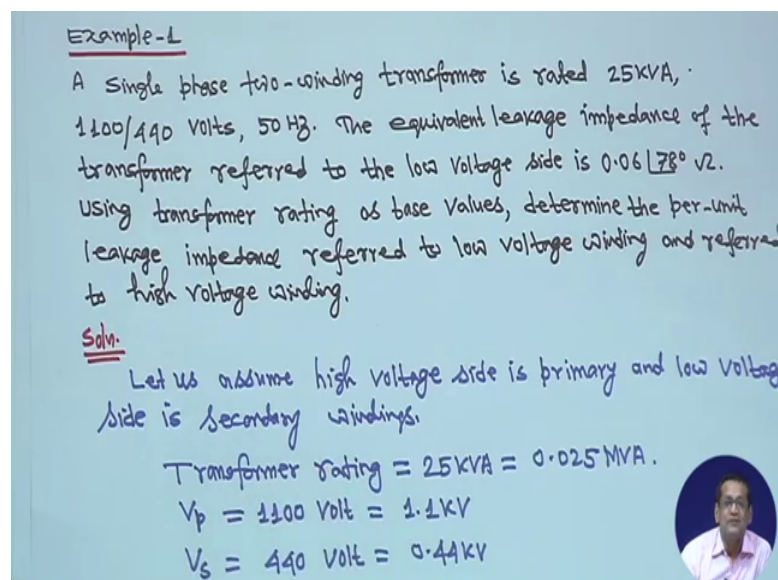 Example-1
A Single phase two-winding transformer is rated 25KVA,.
1100/440 Volts, 50 Hz. The equivalent leakage impedance of the
transformer referred to the low voltage side is 0.06∟78° Ω.
Using transformer rating as base values, determine the per-unit
leakage impedance referred to low voltage winding and referred
to high voltage winding.
Soln.
Let us assume high voltage side is primary and low voltage
side is secondary windings.
Transformer rating = 25KVA = 0.025 MVA.
Vp = 1100 Volt = 1.1KV
Vs = 440 Volt = 0.44KV